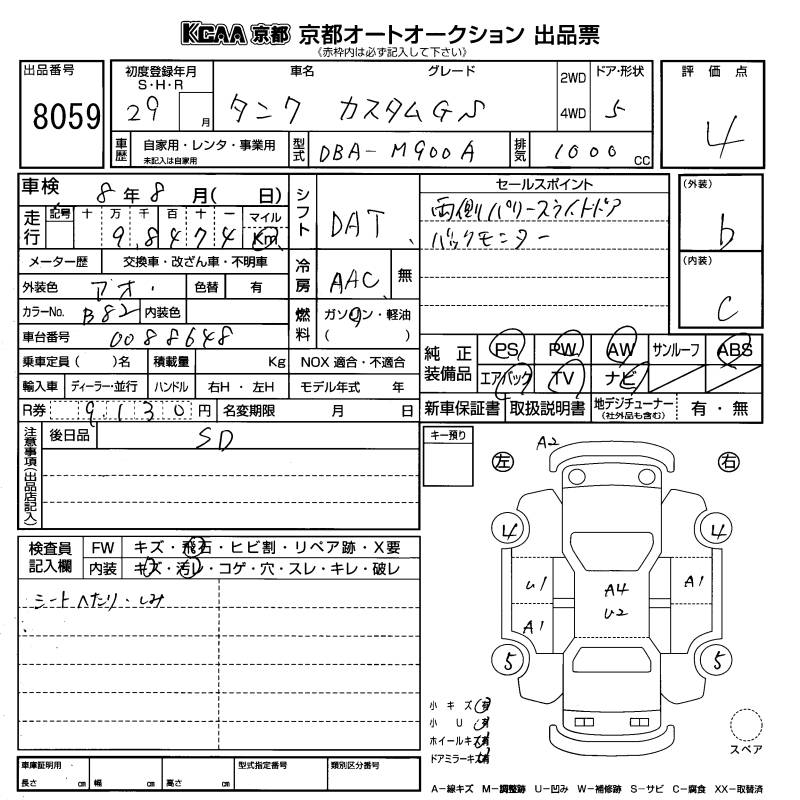 KCAA 京都 京都オートオークション 出品票
《赤枠内は必ず記入して下さい》
出品番号
8059
初度登録年月
S・H・R
29 月
車名 グレード
タンク カスタムG S
2WD
4WD
ドア・形状
5
評価点
4
車歴
自家用・レンタ・事業用
未記入は自家用
型式
DBA-M900A
排気
1000 CC
車検 8年8月( 日)
走行
記号 十 万 千 百 十 一 マイル
98474 Km
メーター歴 交換車・改ざん車・不明車
外装色 アオ. 色替 有
カラーNo. B82 内装色
車台番号 0088648
乗車定員 ( )名 積載量 Kg NOX 適合・不適合
輸入車 ディーラー・並行 ハンドル 右H・左H モデル年式 年
R券 9130円 名変期限 月 日
シフト
DAT
冷房
AAC 無
燃料
ガソリン・軽油
( )
セールスポイント
両側パワースライドドア
バックモニター
(外装)
b
(内装)
C
純正装備品
PS PW AW サンルーフ ABS
エアバック TV ナビ
新車保証書 取扱説明書 地デジチューナー(社外品も含む) 有・無
注意事項(出品店記入)
後日品 SD
キー預り
検査員記入欄
FW キズ・飛石・ヒビ割・リペア跡・X要
内装 キズ・汚レ・コゲ・穴・スレ・キレ・破レ
シートヘたり・しみ
A2
左 右
4 4
U1 A4 A1
U2
A1
5 5
小キズ 有
小U 有
ホイールキズ 有
ドアミラーキズ 有
スペア
車庫証明用
長さ cm 幅 cm 高さ cm
型式指定番号
類別区分番号
A-線キズ M-調整跡 U-凹み W-補修跡 S-サビ C-腐食 XX-取替済